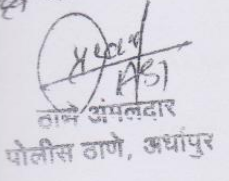 ASI
ठाणे अंमलदार
पोलीस ठाणे, अर्धापुर